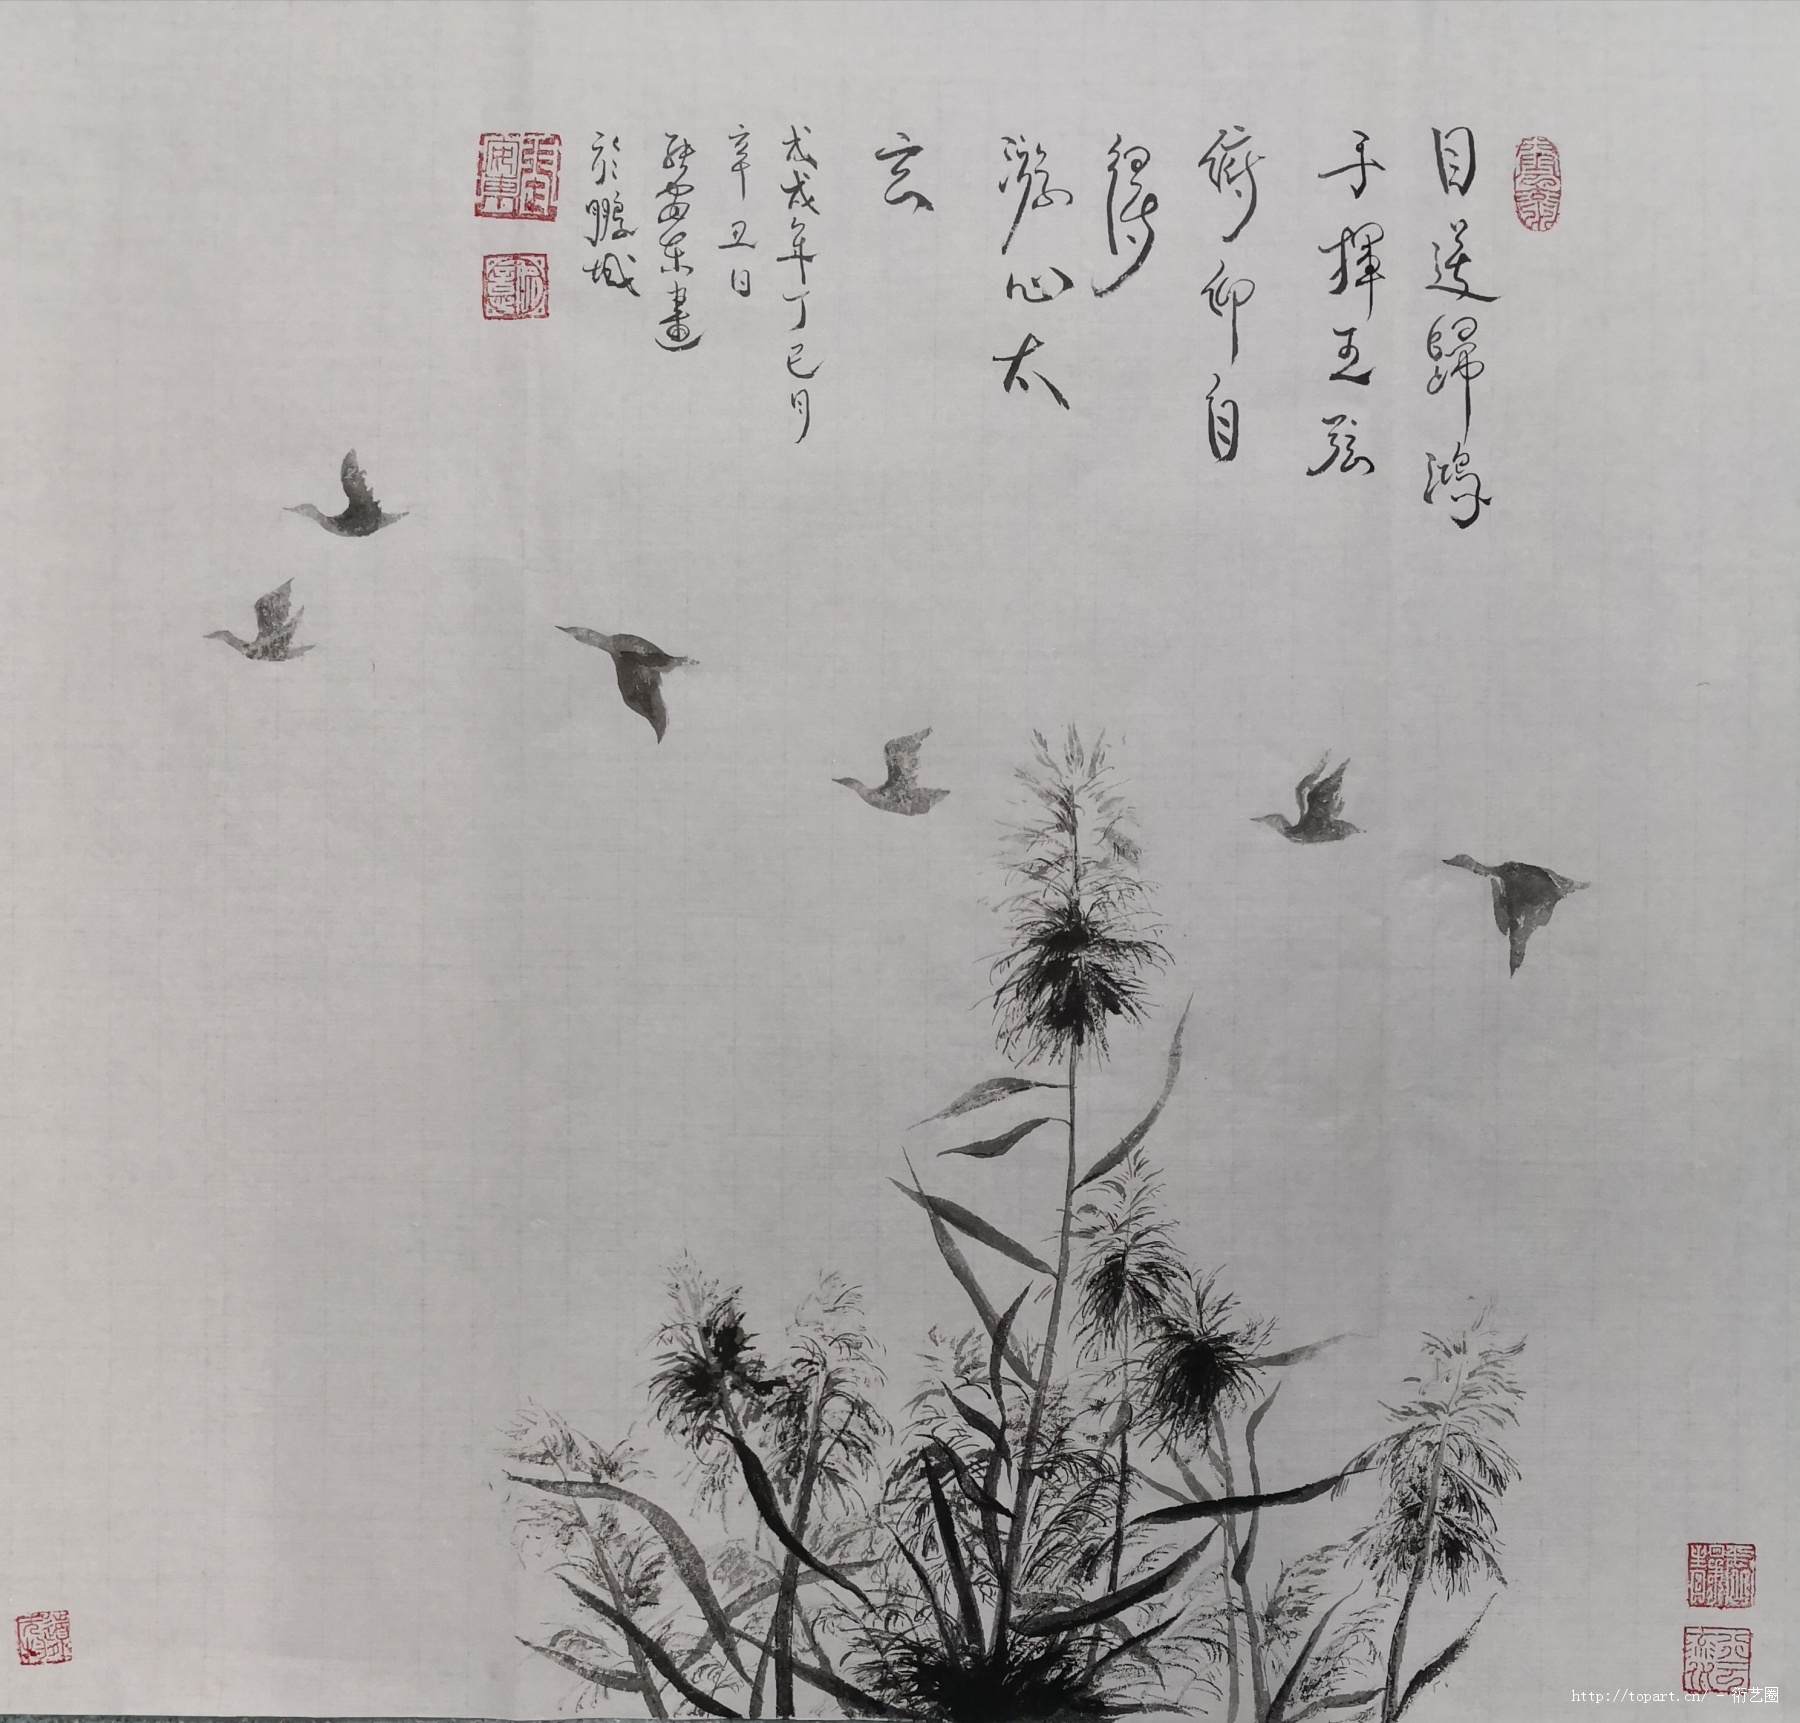 目送歸鴻
手揮五弦
俯仰自
得
游心太
玄
戊戌年丁巳月
辛丑日
東畫
於鵬城
http://topart.cn/ - 衍艺圈